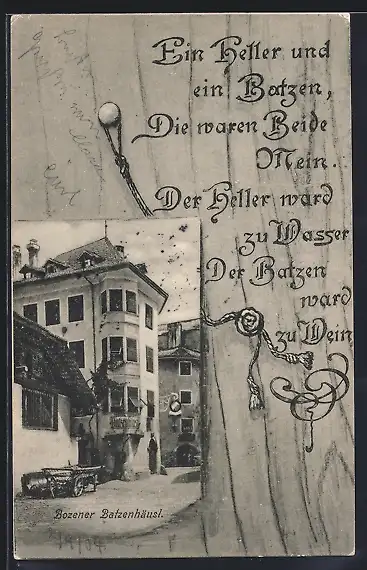 Ein Heller und
ein Batzen,
Die waren Beide
Mein.
Der Heller ward
zu Wasser
Der Batzen
ward
zu Wein
Bozener Batzenhäusl.